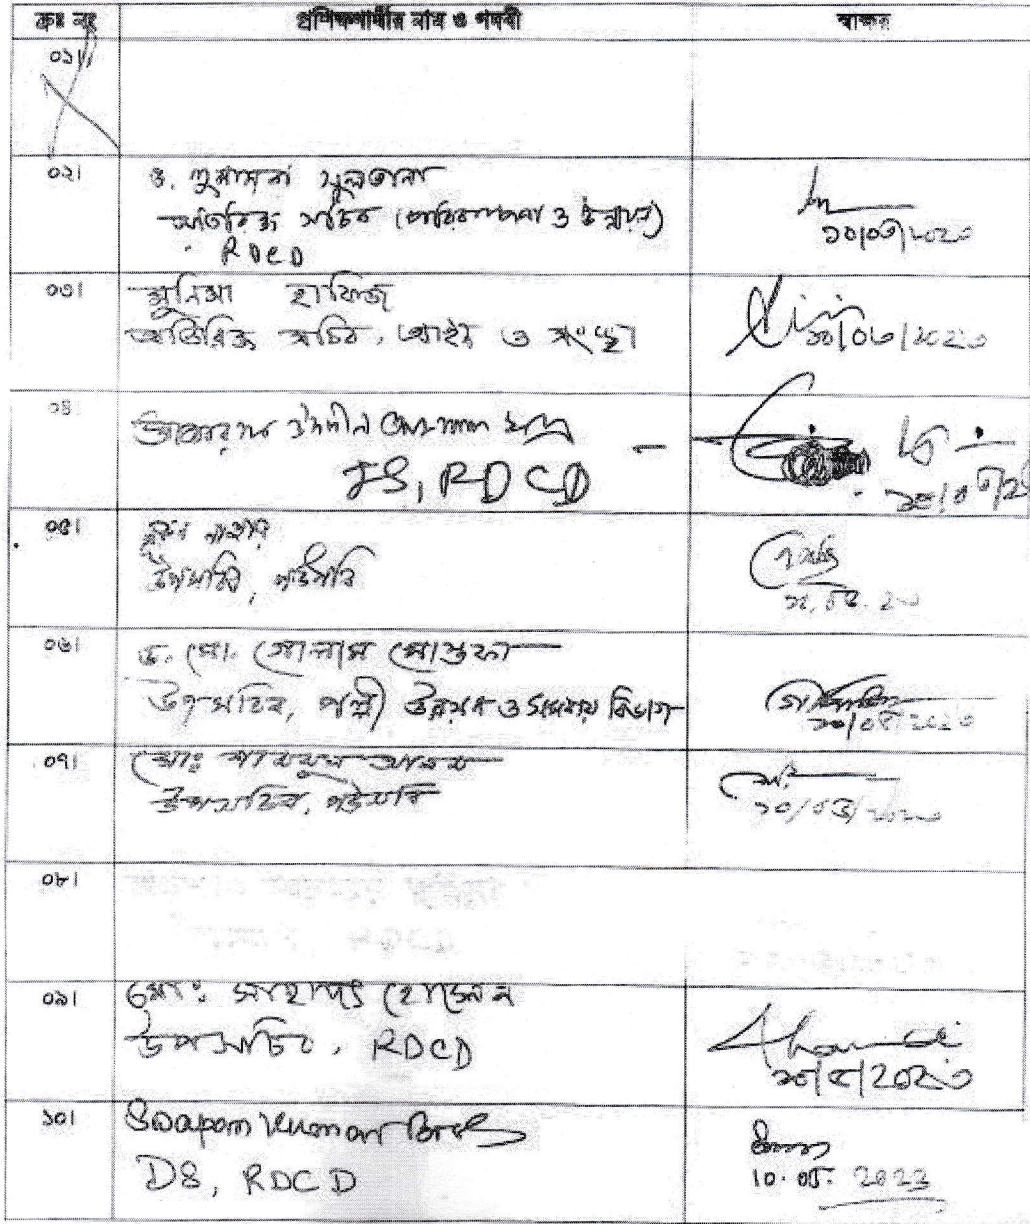 ক্রঃ নং প্রশিক্ষণার্থীর নাম ও পদবী স্বাক্ষর
০১।
০২। ড. সুলতানা
অতিরিক্ত সচিব (পরিকল্পনা ও উন্নয়ন)
RDCD
১০/০৫/২০২৩
০৩। মুনিমা হাফিজ
অতিরিক্ত সচিব, আইন ও সংস্থা
১০/০৫/২০২৩
০৪।
JS, RDCD
০৫। নাহার
উপসচিব, পউসবি
০৬। ড. মো. গোলাম মোস্তফা
উপসচিব, পল্লী উন্নয়ন ও সমবায় বিভাগ
১০/০৫/২০২৩
০৭। মোঃ আলম
উপসচিব, পউসবি
১০/০৫/২০২৩
০৮।
০৯। মোঃ সাহাদৎ হোসেন
উপসচিব, RDCD
১০/৫/২০২৩
১০। Swapan Kumar
DS, RDCD
10.05.2023